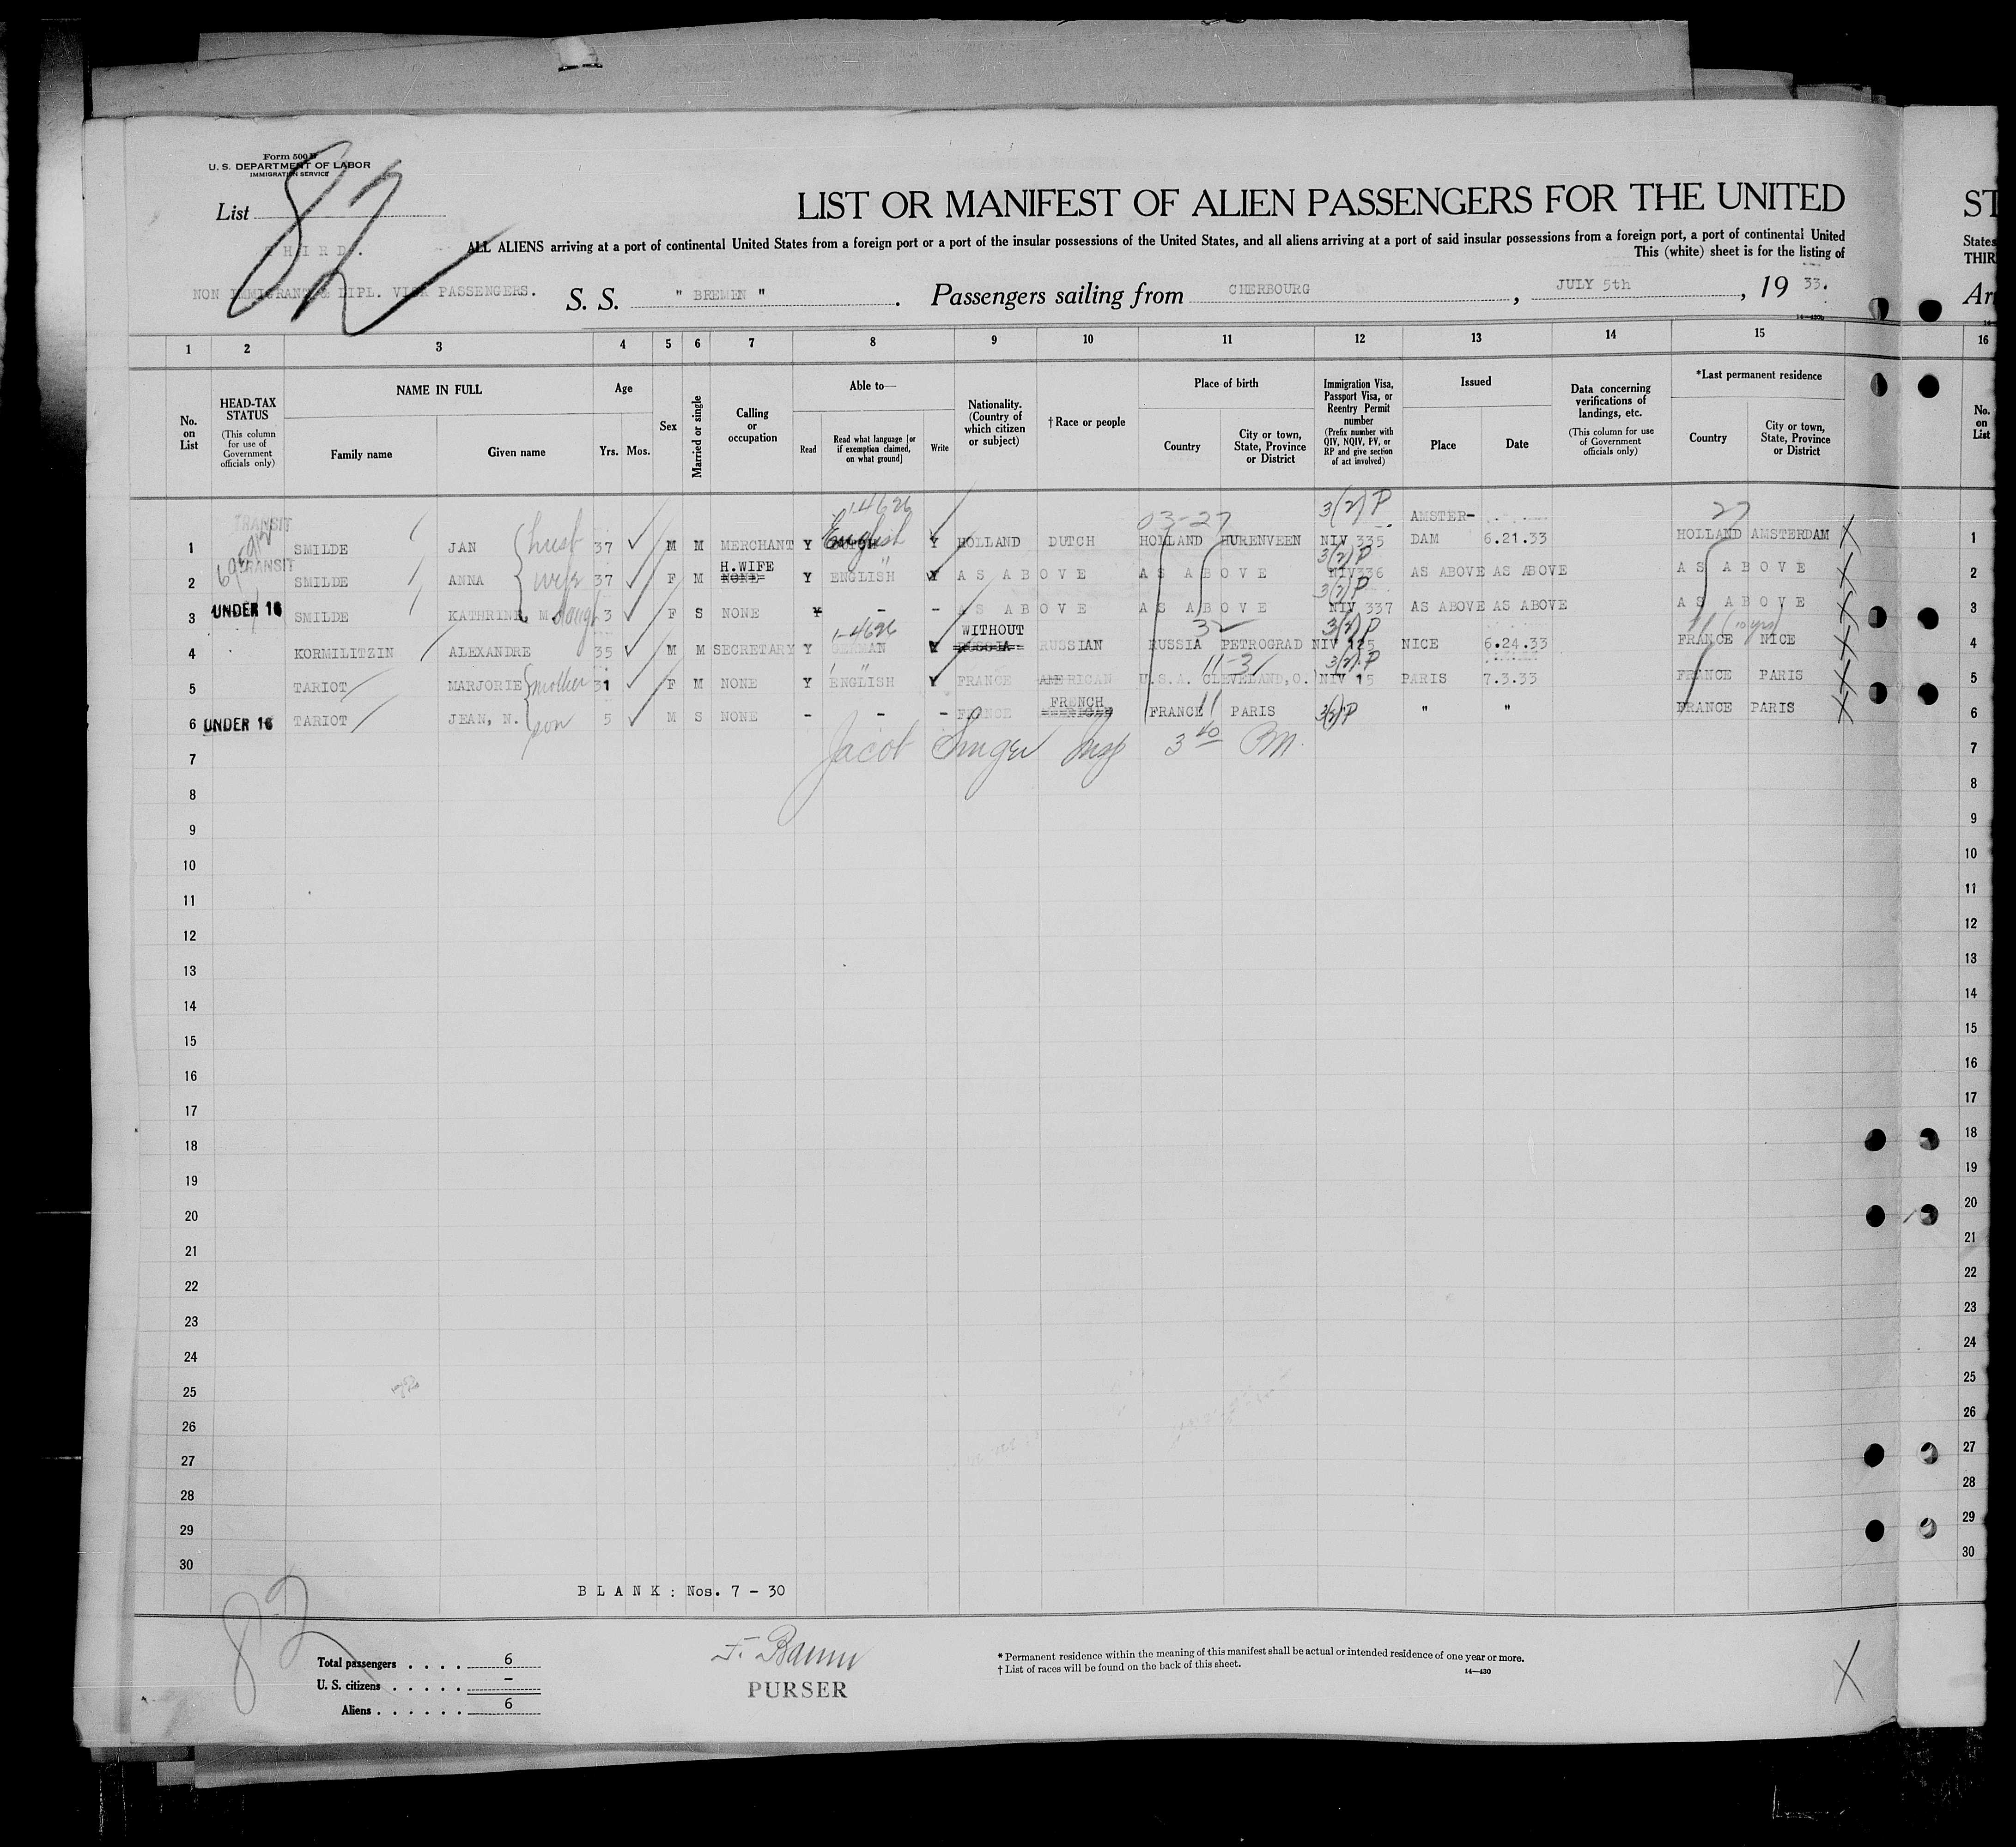 Form 500 B
U. S. DEPARTMENT OF LABOR
IMMIGRATION SERVICE
List
82
THIRD.
NON IMMIGRANT & DIPL. VISA PASSENGERS.
LIST OR MANIFEST OF ALIEN PASSENGERS FOR THE UNITED
ST
ALL ALIENS arriving at a port of continental United States from a foreign port or a port of the insular possessions of the United States, and all aliens arriving at a port of said insular possessions from a foreign port, a port of continental United
States
This (white) sheet is for the listing of
THIR
S. S. " BREMEN " . Passengers sailing from CHERBOURG , JULY 5th , 19 33.
Arr
1 2 3 4 5 6 7 8 9 10 11 12 13 14 15 16
No. on List
HEAD-TAX STATUS (This column for use of Government officials only)
NAME IN FULL
Family name
Given name
Age
Yrs. Mos.
Sex
Married or single
Calling or occupation
Able to—
Read
Read what language [or if exemption claimed, on what ground]
Write
Nationality. (Country of which citizen or subject)
† Race or people
Place of birth
Country
City or town, State, Province or District
Immigration Visa, Passport Visa, or Reentry Permit number (Prefix number with QIV, NQIV, PV, or RP and give section of act involved)
Issued
Place
Date
Data concerning verifications of landings, etc. (This column for use of Government officials only)
*Last permanent residence
Country
City or town, State, Province or District
No. on List
1-4626 03-27 3(2) P AMSTER- 27
1 TRANSIT SMILDE JAN husb 37 M M MERCHANT Y DUTCH English Y HOLLAND DUTCH HOLLAND HURENVEEN NIV 335 DAM 6.21.33 HOLLAND AMSTERDAM X 1
H.WIFE " 3(2) P
2 TRANSIT SMILDE ANNA wife 37 F M NONE Y ENGLISH Y AS ABOVE AS ABOVE NIV336 AS ABOVE AS ABOVE AS ABOVE X 2
3(2) P
3 UNDER 16 SMILDE KATHRINE M daugh 3 F S NONE Y - - AS ABOVE AS ABOVE NIV 337 AS ABOVE AS ABOVE AS ABOVE X 3
1-4626 WITHOUT 32 3(2) P (10 yrs)
4 KORMILITZIN ALEXANDRE 35 M M SECRETARY Y GERMAN Y RUSSIA RUSSIAN RUSSIA PETROGRAD NIV 125 NICE 6.24.33 FRANCE NICE X 4
" 11-31 3(2) P
5 TARIOT MARJORIE mother 31 F M NONE Y ENGLISH Y FRANCE AMERICAN U.S.A. CLEVELAND,O. NIV 15 PARIS 7.3.33 FRANCE PARIS X 5
FRENCH
6 UNDER 16 TARIOT JEAN, N. son 5 M S NONE - - - FRANCE FRANCE 11 PARIS 3(2) P " " FRANCE PARIS X 6
7 Jacob Singer Insp 3 40 PM. 7
8 8
9 9
10 10
11 11
12 12
13 13
14 14
15 15
16 16
17 17
18 18
19 19
20 20
21 21
22 22
23 23
24 24
25 25
26 26
27 27
28 28
29 29
30 30
BLANK: Nos. 7 - 30
82
Total passengers . . . . 6
U. S. citizens . . . . . –
Aliens . . . . . . 6
PURSER
* Permanent residence within the meaning of this manifest shall be actual or intended residence of one year or more.
† List of races will be found on the back of this sheet.
14—430
X